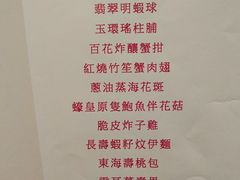 翡翠明蝦球
玉環瑤柱脯
百花炸釀蟹拑
紅燒竹笙蟹肉翅
蔥油蒸海花斑
蠔皇原隻鮑魚伴花菇
脆皮炸子雞
長壽蝦籽炆伊麵
東海壽桃包